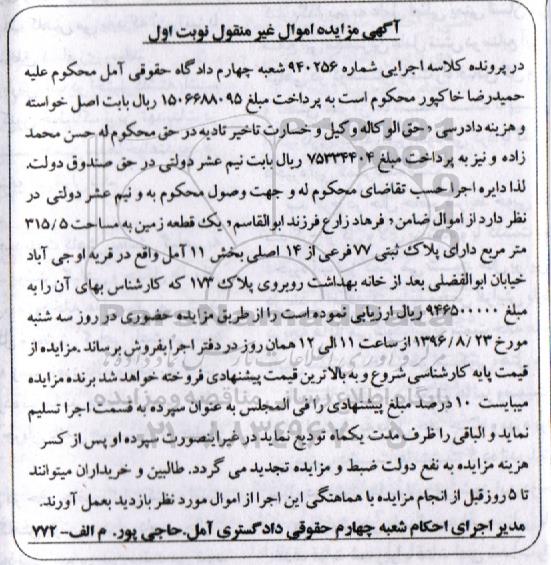 آگهی مزایده اموال غیر منقول نوبت اول
در پرونده کلاسه اجرایی شماره ۹۴۰۲۵۶ شعبه چهارم دادگاه حقوقی آمل محکوم علیه
حمیدرضا خاکپور محکوم است به پرداخت مبلغ ۱۵۰۶۶۸۸۰۹۵ ریال بابت اصل خواسته
و هزینه دادرسی و حق الوکاله وکیل و خسارت تاخیر تادیه در حق محکوم له حسن محمد
زاده و نیز به پرداخت مبلغ ۷۵۳۳۴۴۰۴ ریال بابت نیم عشر دولتی در حق صندوق دولت.
لذا دایره اجرا حسب تقاضای محکوم له و جهت وصول محکوم به و نیم عشر دولتی در
نظر دارد از اموال ضامن، فرهاد زارع فرزند ابوالقاسم، یک قطعه زمین به مساحت ۳۱۵/۵
متر مربع دارای پلاک ثبتی ۷۷ فرعی از ۱۴ اصلی بخش ۱۱ آمل واقع در قریه اوجی آباد
خیابان ابوالفضلی بعد از خانه بهداشت روبروی پلاک ۱۷۳ که کارشناس بهای آن را به
مبلغ ۹۴۶۵۰۰۰۰۰ ریال ارزیابی نموده است را از طریق مزایده حضوری در روز سه شنبه
مورخ ۱۳۹۶/۸/۲۳ از ساعت ۱۱ الی ۱۲ همان روز در دفتر اجرا بفروش برساند .مزایده از
قیمت پایه کارشناسی شروع و به بالاترین قیمت پیشنهادی فروخته خواهد شد برنده مزایده
میبایست ۱۰ درصد مبلغ پیشنهادی را فی المجلس به عنوان سپرده به قسمت اجرا تسلیم
نماید و الباقی را ظرف مدت یکماه تودیع نماید در غیر اینصورت سپرده او پس از کسر
هزینه مزایده به نفع دولت ضبط و مزایده تجدید می گردد. طالبین و خریداران میتوانند
تا ۵ روز قبل از انجام مزایده با هماهنگی این اجرا از اموال مورد نظر بازدید بعمل آورند.
مدیر اجرای احکام شعبه چهارم حقوقی دادگستری آمل.حاجی پور. م الف- ۷۷۲